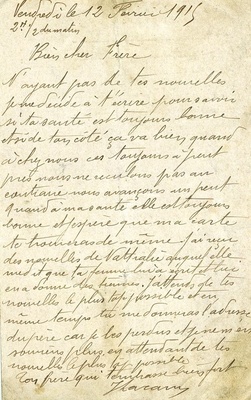 Vendredi le 12 Février 1915
2h 1/2 du matin
Bien cher Frère
N'ayant pas de tes nouvelles
je me décide a t'écrire pour savoir
si ta santé est toujours bonne
et si de ton côté ça va bien quand
à chez nous ces toujours à peut
près nous ne reculons pas au
contraire nous avançons un peut
quand à ma santé elle est toujours
bonne et j'espère que ma carte
te trouveras de même j'ai reçu
des nouvelles de Nathalie auquel elle
me dit que ta femme lui a écrit et lui
en a donné des tiennes. J'attends de tes
nouvelles le plus tôt possible et en
même temps tu me donneras l'adresse
du père car je les perdus et je ne m'en
souviens plus, en attendant de tes
nouvelles le plus tôt possible
Ton frère qui t'embrasse bien fort